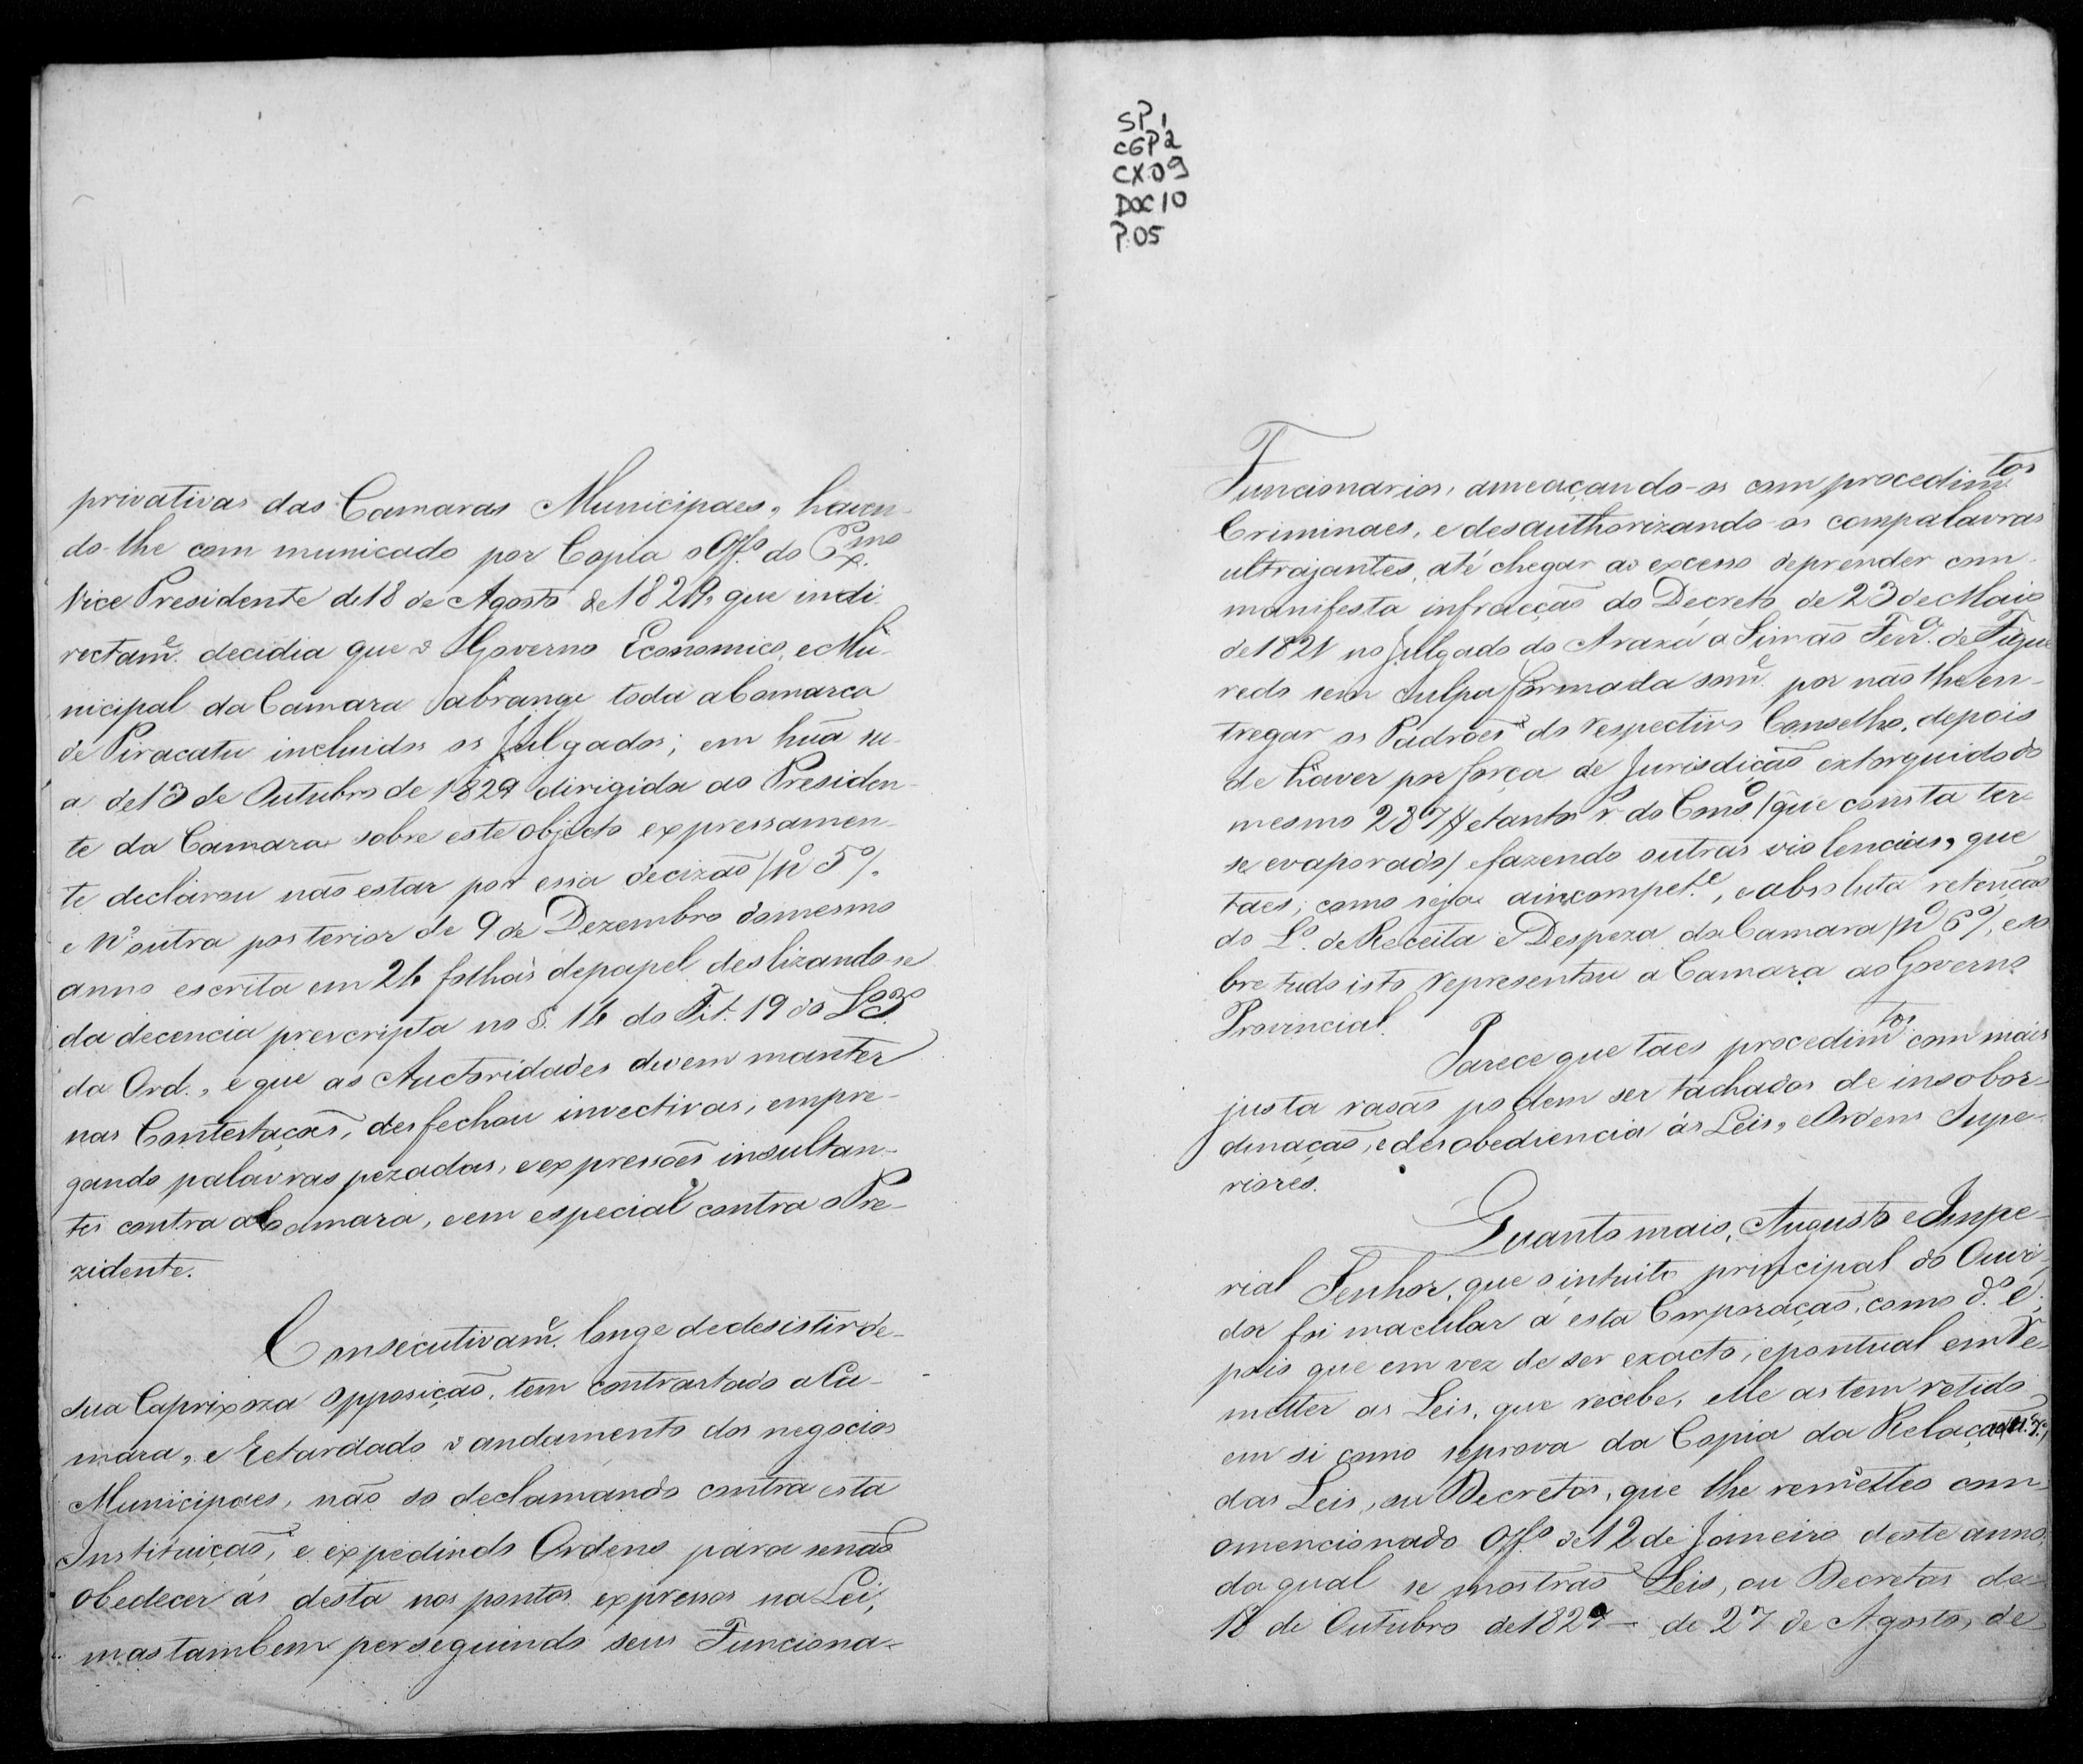 privativas das Camaras Municipaes, haven-
do-lhe com municado por Copia o Off.º do Ex.mo
Vice Presidente de 18 de Agosto de 1829, que indi-
rectam.e decidia que o Governo Economico, e Mu-
nicipal da Camara abrange toda a Comarca
de Piracatu incluidos os Julgados; em hũa su-
a de 13 de Outubro de 1829 dirigida ao Presiden-
te da Camara sobre este objecto expressamen-
te declarou não estar por essa decizão (nº 5º).
e n'outra posterior de 9 de Dezembro do mesmo
anno escrita em 24 folhas de papel deslizando-se
da decencia prescripta no §. 14 do Tit. 19 do Lº 3º
da Ord., e que as Auctoridades devem manter
nas Contestações, desfechou invectivas, empre-
gando palavras pezadas, e expressões insultan-
tes contra a Camara, e em especial contra o Pre-
zidente.
Consecutivam.e longe de desistir de
sua Caprixoza opposição, tem contrastado a Ca-
mara, e retardado o andamento dos negocios
Municipaes, não so declamando contra esta
Instituição, e expedindo Ordens para se não
obedecer ás desta nos pontos expressos na Lei,
mas tambem perseguindo seus Funciona-
SP 1
CGP 2
CX.09
DOC 10
P.05
Funcionarios, ameaçando-os com procedim.tos
Criminaes, e desauthorizando-os com palavras
ultrajantes, até chegar ao excesso de prender com
manifesta infracção do Decreto de 23 de Maio
de 1821 no Julgado do Araxá a Simão Ferr.a de Figue
redo sem culpa formada som.e por não lhe en-
tregar os Padrões do respectivo Conselho, depois
de haver por força de Jurisdição extorquido do
mesmo 287// e tantos r.s do Cons.º (que consta ter-
se evaporado) e fazendo outras violencias, que
taes, como seja a incompet.e, e absoluta retenção
do Lº. de Receita e Despeza da Camara (nº 6º), e so
bre tudo isto representou a Camara ao Governo
Provincial.
Parece que taes procedim.tos com mais
justa rasão podem ser tachados de insobor-
dinação, e desobediencia ás Leis, e Ordens Supe-
riores.
Quanto mais, Augusto e Impe-
rial Senhor, que o intuito principal do Ouvi-
dor foi macular á esta Corporação, como d.º é,
pois que em vez de ser exacto, e pontual em re-
metter as Leis, que recebe, elle as tem retido
em si como se prova da Copia da Relação (nº 7º)
das Leis, ou Decretos, que lhe remetteo com
o mencionado Off.º de 12 de Janeiro deste anno,
da qual se mostrão Leis, ou Decretos de
18 de Outubro de 1827 — de 27 de Agosto, de